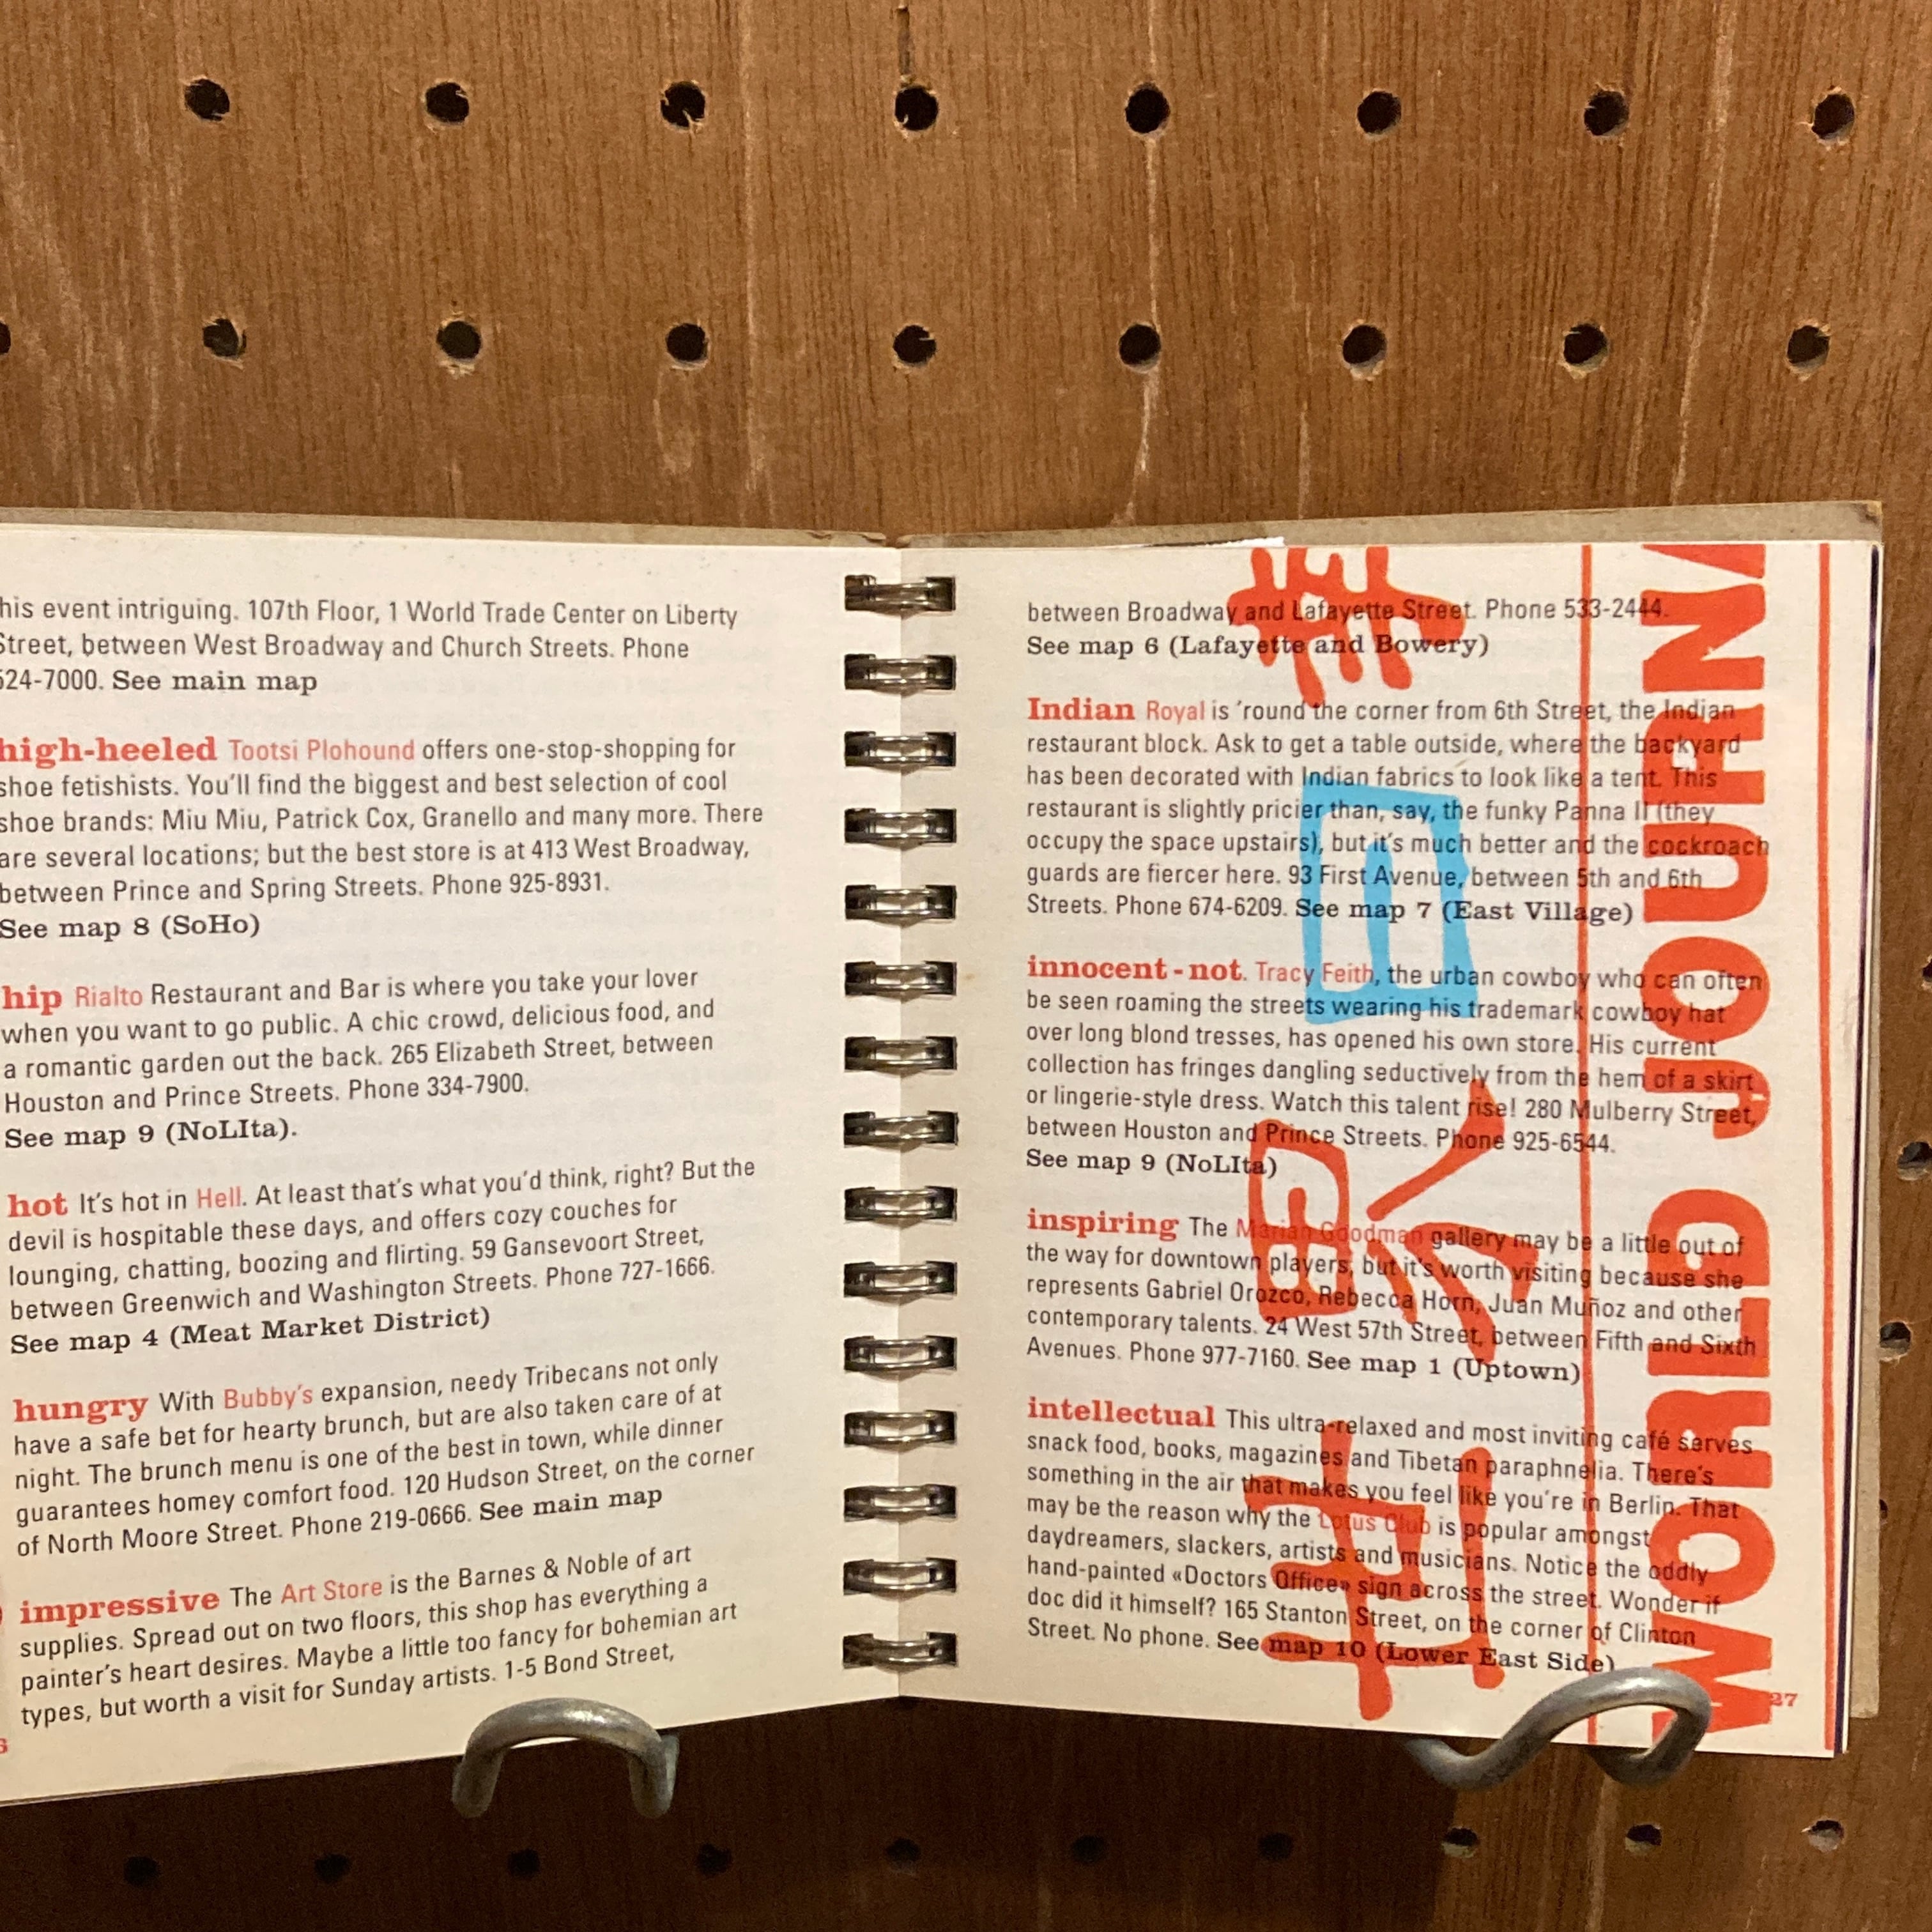 his event intriguing. 107th Floor, 1 World Trade Center on Liberty
Street, between West Broadway and Church Streets. Phone
524-7000. See main map
high-heeled Tootsi Plohound offers one-stop-shopping for
shoe fetishists. You'll find the biggest and best selection of cool
shoe brands: Miu Miu, Patrick Cox, Granello and many more. There
are several locations; but the best store is at 413 West Broadway,
between Prince and Spring Streets. Phone 925-8931.
See map 8 (SoHo)
hip Rialto Restaurant and Bar is where you take your lover
when you want to go public. A chic crowd, delicious food, and
a romantic garden out the back. 265 Elizabeth Street, between
Houston and Prince Streets. Phone 334-7900.
See map 9 (NoLIta).
hot It's hot in Hell. At least that's what you'd think, right? But the
devil is hospitable these days, and offers cozy couches for
lounging, chatting, boozing and flirting. 59 Gansevoort Street,
between Greenwich and Washington Streets. Phone 727-1666.
See map 4 (Meat Market District)
hungry With Bubby's expansion, needy Tribecans not only
have a safe bet for hearty brunch, but are also taken care of at
night. The brunch menu is one of the best in town, while dinner
guarantees homey comfort food. 120 Hudson Street, on the corner
of North Moore Street. Phone 219-0666. See main map
impressive The Art Store is the Barnes & Noble of art
supplies. Spread out on two floors, this shop has everything a
painter's heart desires. Maybe a little too fancy for bohemian art
types, but worth a visit for Sunday artists. 1-5 Bond Street,
between Broadway and Lafayette Street. Phone 533-2444.
See map 6 (Lafayette and Bowery)
Indian Royal is 'round the corner from 6th Street, the Indian
restaurant block. Ask to get a table outside, where the backyard
has been decorated with Indian fabrics to look like a tent. This
restaurant is slightly pricier than, say, the funky Panna II (they
occupy the space upstairs), but it's much better and the cockroach
guards are fiercer here. 93 First Avenue, between 5th and 6th
Streets. Phone 674-6209. See map 7 (East Village)
innocent - not. Tracy Feith, the urban cowboy who can often
be seen roaming the streets wearing his trademark cowboy hat
over long blond tresses, has opened his own store. His current
collection has fringes dangling seductively from the hem of a skirt
or lingerie-style dress. Watch this talent rise! 280 Mulberry Street,
between Houston and Prince Streets. Phone 925-6544.
See map 9 (NoLIta)
inspiring The Marian Goodman gallery may be a little out of
the way for downtown players, but it's worth visiting because she
represents Gabriel Orozco, Rebecca Horn, Juan Muñoz and other
contemporary talents. 24 West 57th Street, between Fifth and Sixth
Avenues. Phone 977-7160. See map 1 (Uptown)
intellectual This ultra-relaxed and most inviting café serves
snack food, books, magazines and Tibetan paraphnelia. There's
something in the air that makes you feel like you're in Berlin. That
may be the reason why the Lotus Club is popular amongst
daydreamers, slackers, artists and musicians. Notice the oddly
hand-painted «Doctors Office» sign across the street. Wonder if
doc did it himself? 165 Stanton Street, on the corner of Clinton
Street. No phone. See map 10 (Lower East Side)
27
WORLD JOURNA